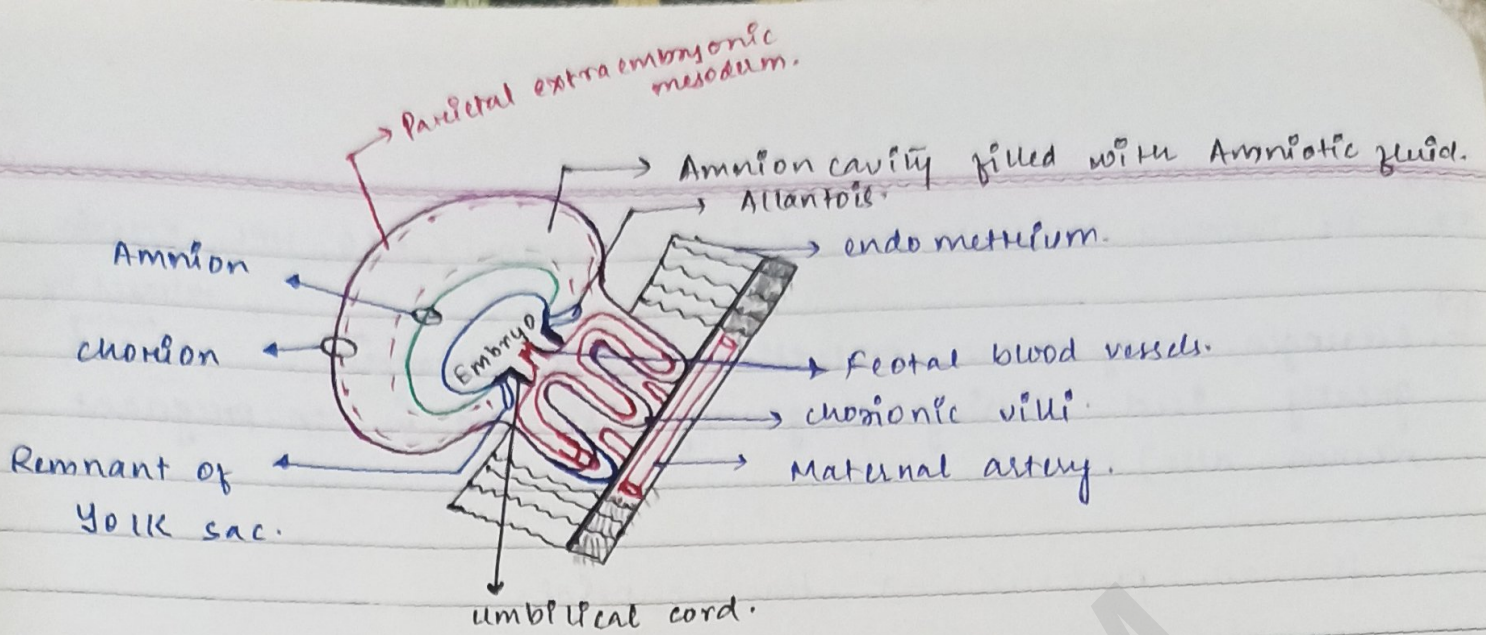 Parietal extraembryonic
mesodum.
Amnion cavity filled with Amniotic fluid.
Allantois.
endometrium.
Amnion
Embryo
chorion
Feotal blood vessels.
chorionic villi.
Maternal artery.
Remnant of
Yolk sac.
umbilical cord.